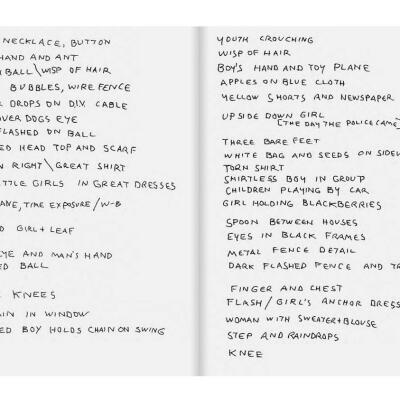 NECKLACE, BUTTON
HAND AND ANT
BALL\WISP OF HAIR
BUBBLES, WIRE FENCE
DROPS ON D.I.Y. CABLE
OVER DOGS EYE
FLASHED ON BALL
ED HEAD TOP AND SCARF
N RIGHT\GREAT SHIRT
TTLE GIRLS IN GREAT DRESSES
ANE, TIME EXPOSURE / W-B
D GIRL + LEAF
EYE AND MAN'S HAND
ED BALL
KNEES
IN IN WINDOW
ED BOY HOLDS CHAIN ON SWING
YOUTH CROUCHING
WISP OF HAIR
BOY'S HAND AND TOY PLANE
APPLES ON BLUE CLOTH
YELLOW SHORTS AND NEWSPAPER
UPSIDE DOWN GIRL
[THE DAY THE POLICE CAME]
THREE BARE FEET
WHITE BAG AND SEEDS ON SIDEW
TORN SHIRT
SHIRTLESS BOY IN GROUP
CHILDREN PLAYING BY CAR
GIRL HOLDING BLACKBERRIES
SPOON BETWEEN HOUSES
EYES IN BLACK FRAMES
METAL FENCE DETAIL
DARK FLASHED FENCE AND TR
FINGER AND CHEST
FLASH / GIRL'S ANCHOR DRESS
WOMAN WITH SWEATER + BLOUSE
STEP AND RAINDROPS
KNEE